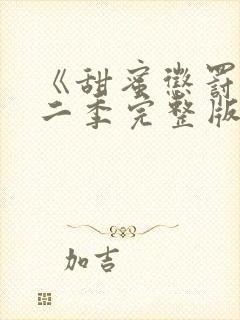 《甜蜜懲罰
二季完整版
加吉